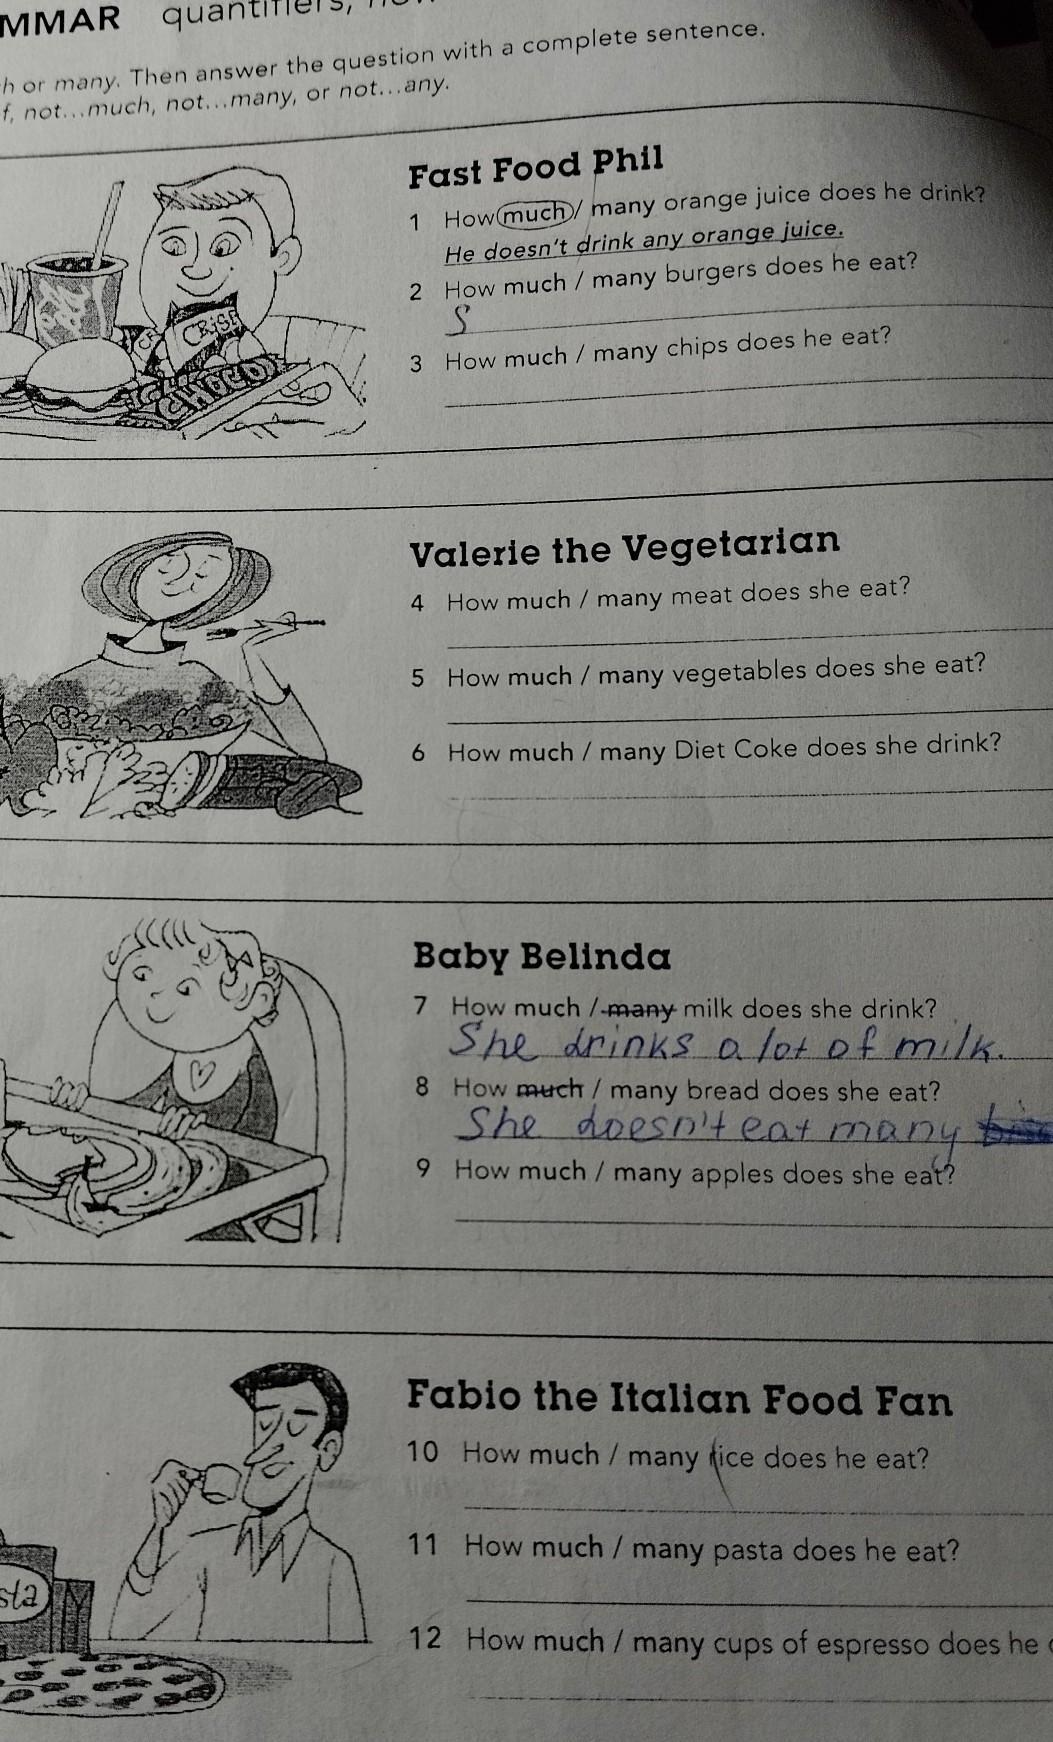 MMAR quantifiers,
h or many. Then answer the question with a complete sentence.
f, not...much, not...many, or not...any.
Fast Food Phil
1 How much / many orange juice does he drink?
He doesn't drink any orange juice.
2 How much / many burgers does he eat?
S
3 How much / many chips does he eat?
CRISP
CHOCO
Valerie the Vegetarian
4 How much / many meat does she eat?
5 How much / many vegetables does she eat?
6 How much / many Diet Coke does she drink?
Baby Belinda
7 How much / many milk does she drink?
She drinks a lot of milk.
8 How much / many bread does she eat?
She doesn't eat many
9 How much / many apples does she eat?
Fabio the Italian Food Fan
10 How much / many rice does he eat?
11 How much / many pasta does he eat?
sta
12 How much / many cups of espresso does he